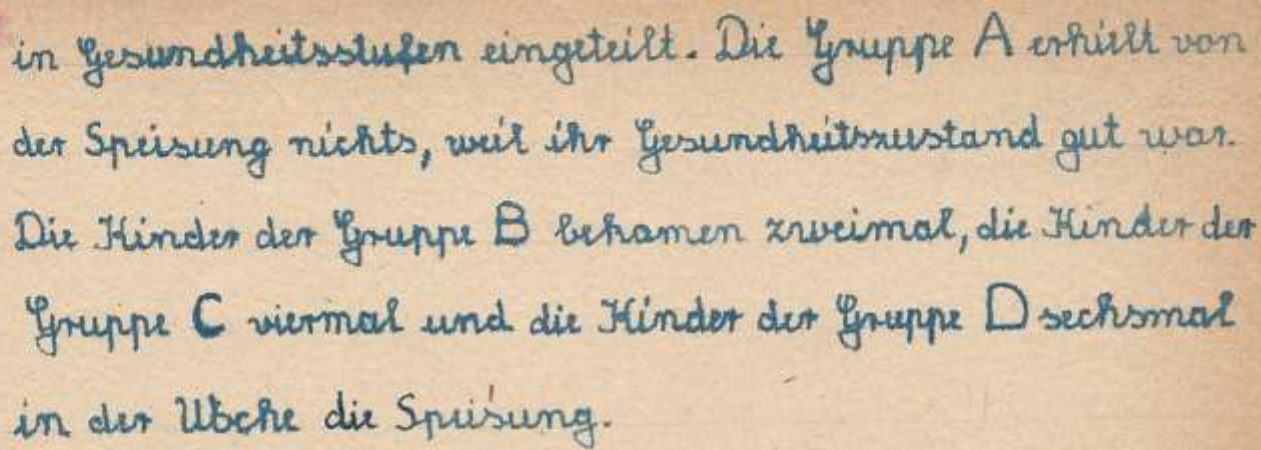 in Gesundheitsstufen eingeteilt. Die Gruppe A erhielt von
der Speisung nichts, weil ihr Gesundheitszustand gut war.
Die Kinder der Gruppe B bekamen zweimal, die Kinder der
Gruppe C viermal und die Kinder der Gruppe D sechsmal
in der Woche die Speisung.